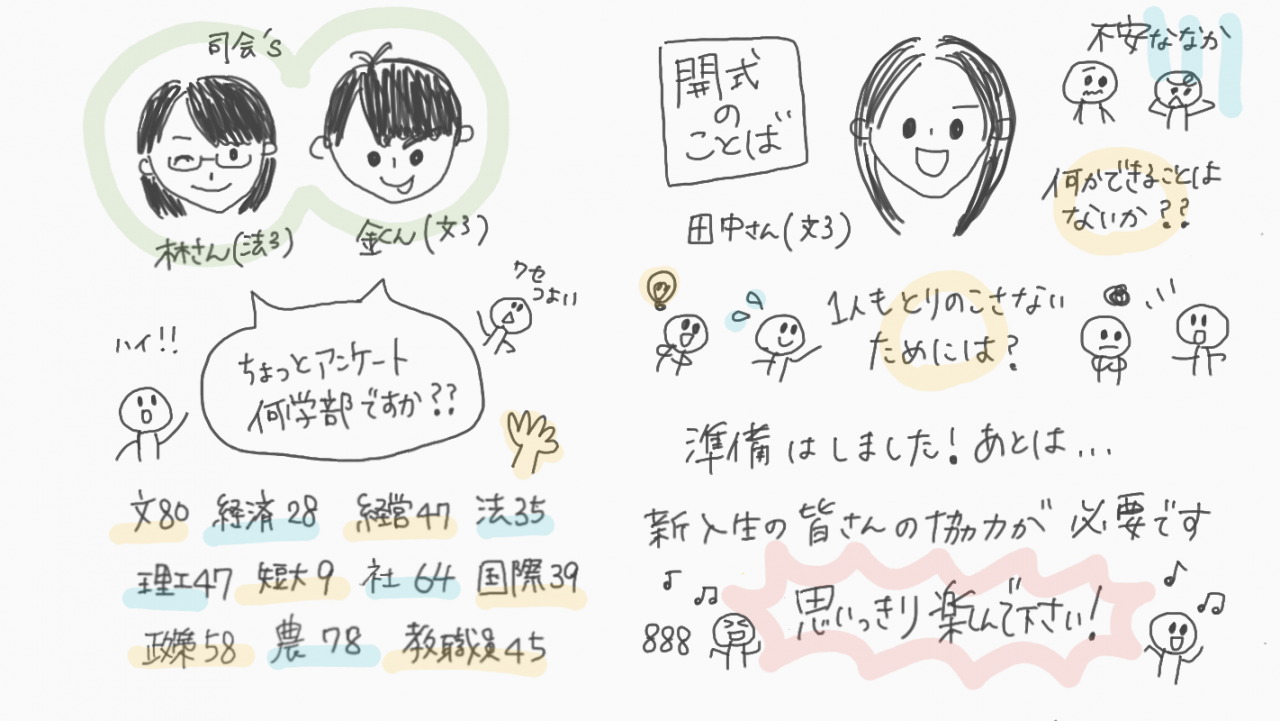 司会's
林さん(法3)
金くん(文3)
クセ
つよい
ハイ!!
ちょっとアンケート
何学部ですか??
文80 経済28 経営47 法35
理工47 短大9 社64 国際39
政策58 農78 教職員45
開式
の
ことば
田中さん(文3)
不安ななか
何かできることは
ないか??
1人もとりのこさない
ためには?
準備はしました!あとは...
新入生の皆さんの協力が必要です
888
思いっきり楽しんで下さい!